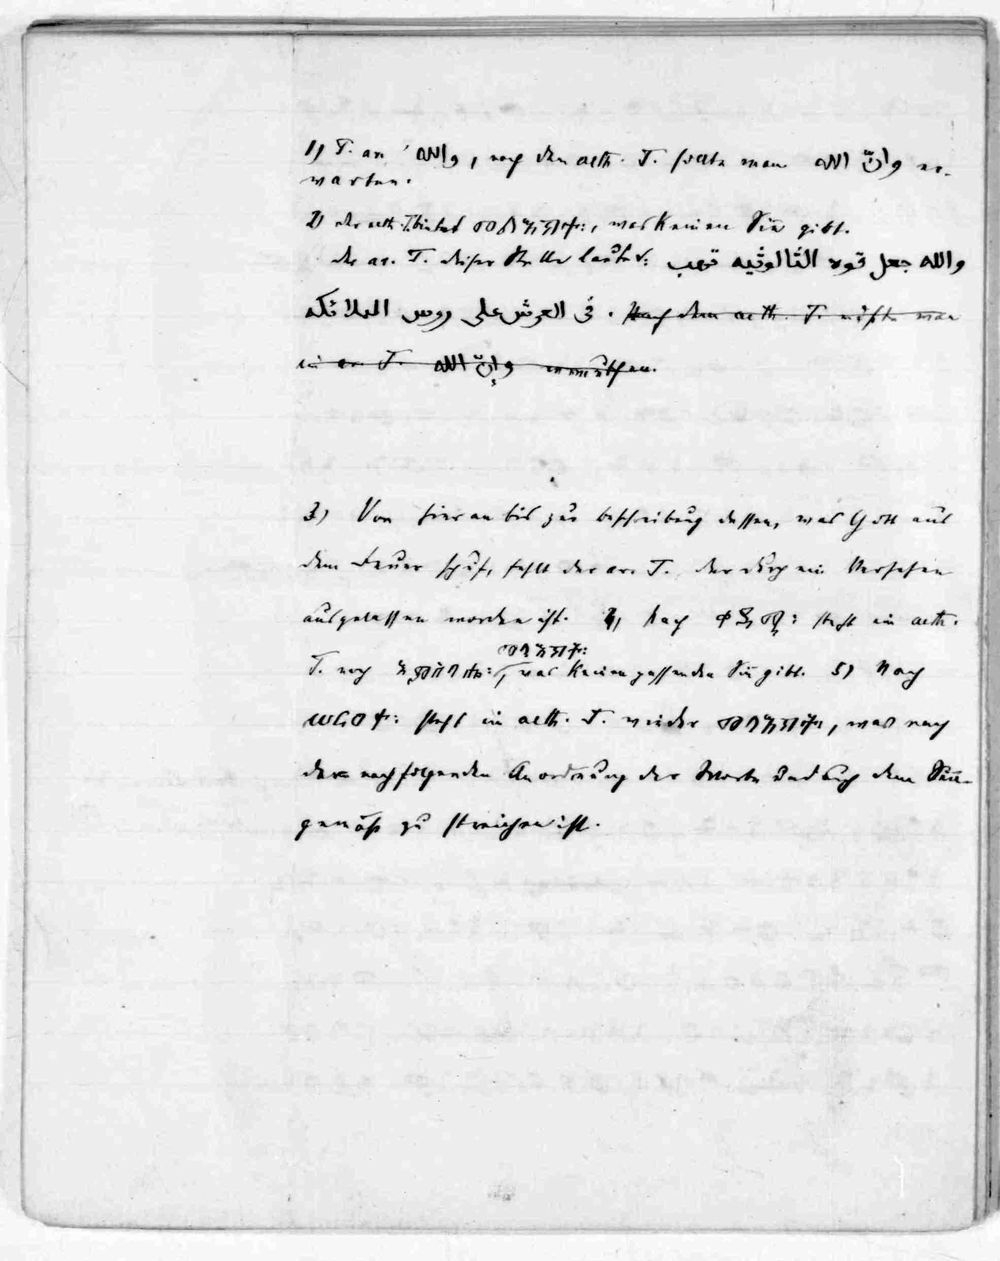 1) T. ar. والله, nach dem aeth. T. sollte man وانّ الله er-
warten.
2) der aeth. T. bietet መለኮት፡, was keinen Sin̄ gibt.
der ar. T. dieser Stelle lautet: والله جعل قوه الثالوثيه تهب
فى العرش على روس الملائكه. Nach dem aeth. T. müßte man
im ar. T. وإنّ الله
3) Von hier an bis zur Beschreibung dessen, was Gott aus
dem Feuer schuf, fehlt der ar. T., der durch ein Versehen
ausgelassen worden ist. 4) Nach ቀዳሚ፡ steht im aeth.
T. noch was keinen passenden Sin̄ gibt. 5) Nach
ሠርዐት፡ steht im aeth. T. wieder was nach
der nachfolgenden Anordnung der Worte und auch dem Sin̄-
gemäß zu streichen ist.